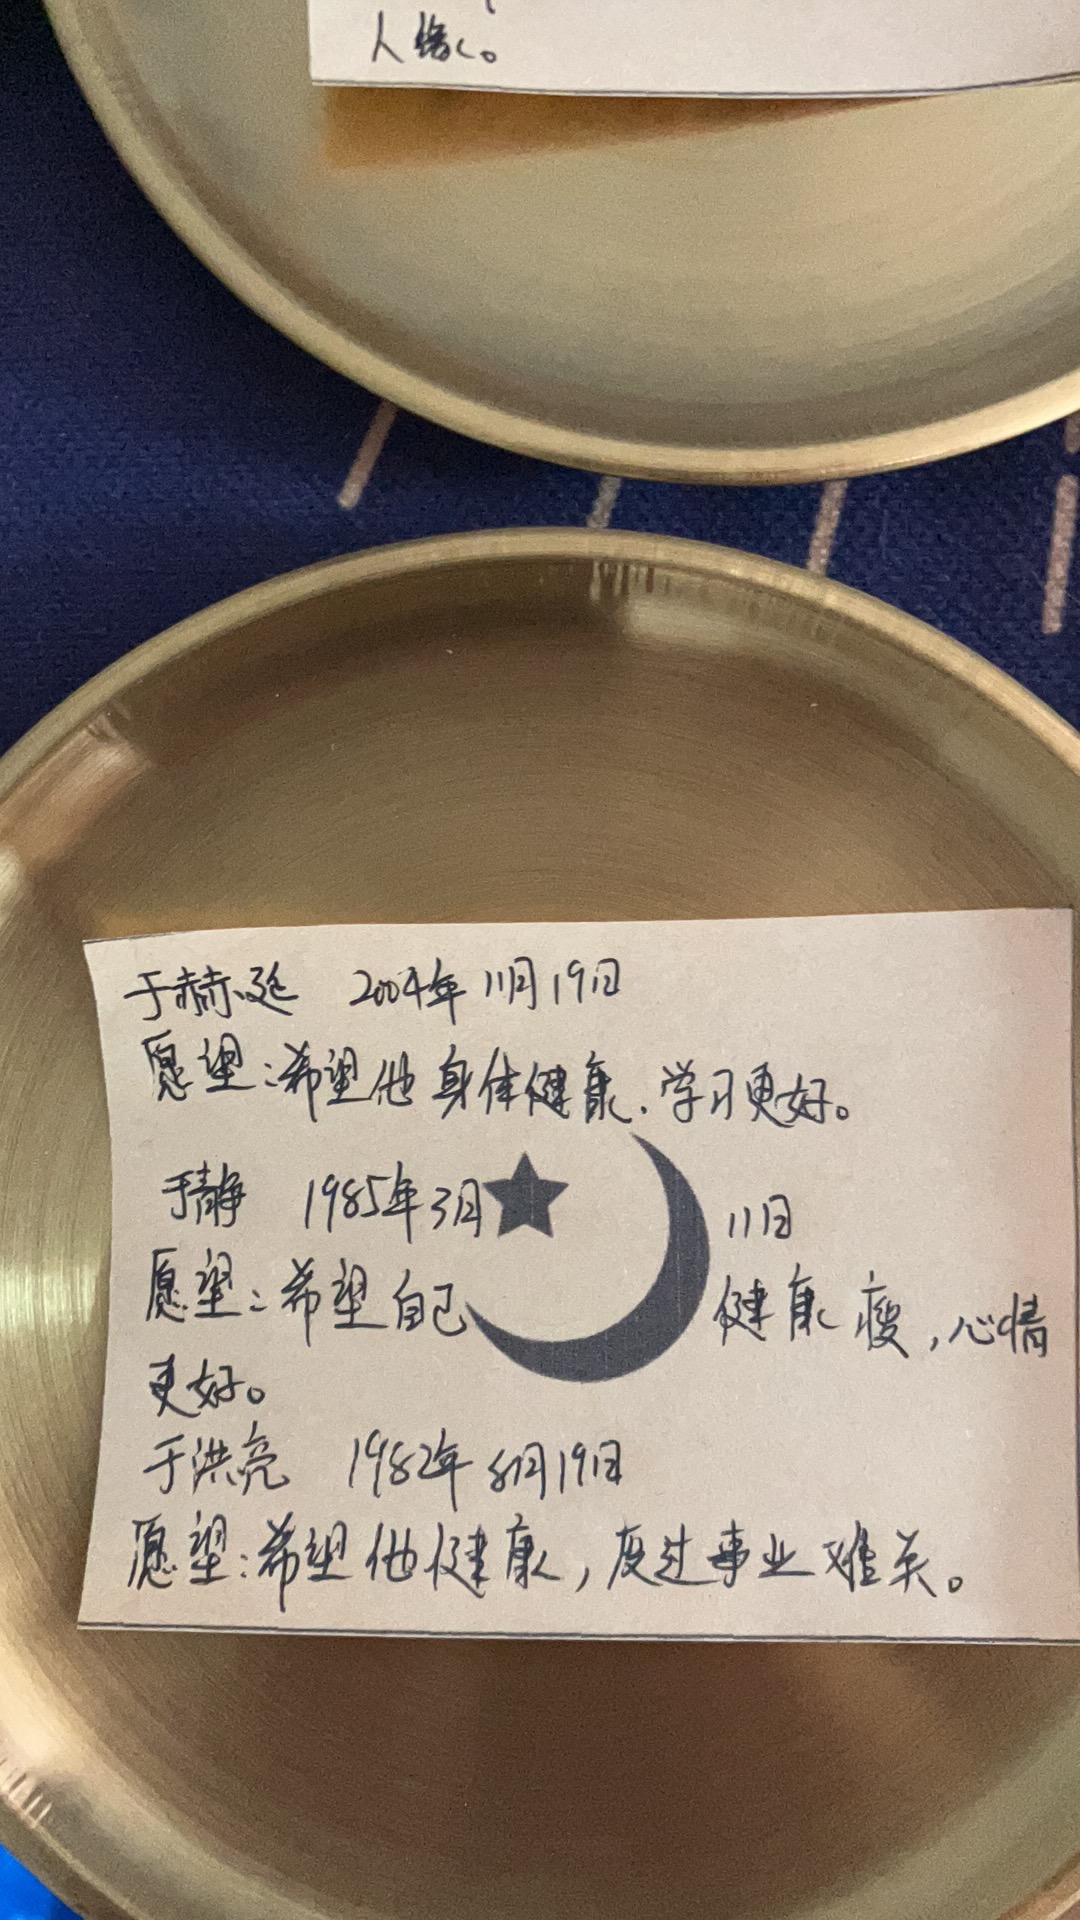 人缘。
于赫延 2004年11月19日
愿望:希望他身体健康、学习更好。
于静 1985年3月 11日
愿望:希望自己 健康瘦,心情
更好。
于洪亮 1982年8月19日
愿望:希望他健康,度过事业难关。